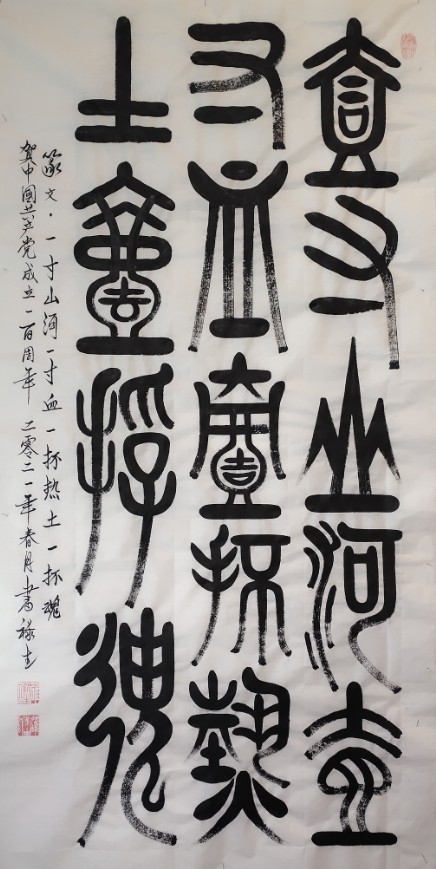 壹寸山河壹
寸血壹抔熱
土壹抔魂
篆文·一寸山河一寸血一抔热土一抔魂
贺中国共产党成立一百周年 二零二一年春月書禄